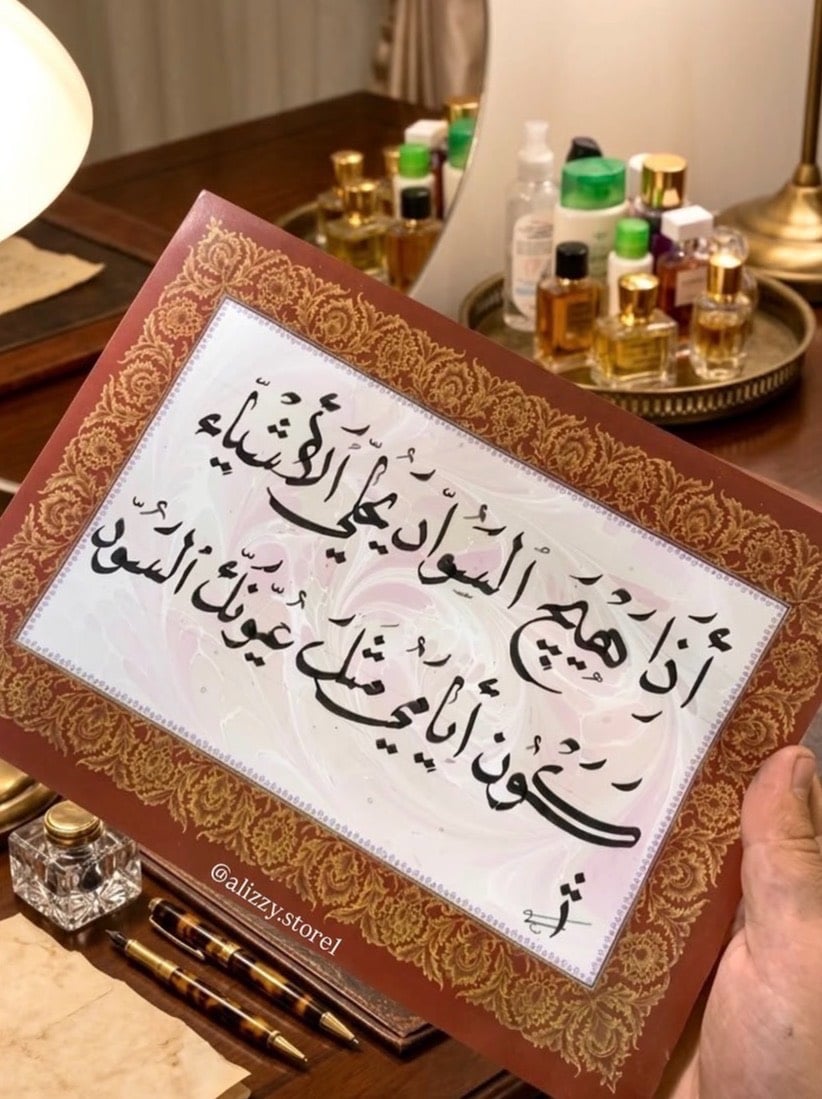 أذا هيج السواد يحلي الأشياء
كون أيامي مثل عيونك السود
@alizzy.store1